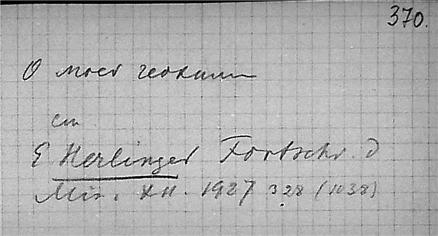 370.
О
см
E Herlinger Fortschr. d
Min. XII. 1927 328 (1038)